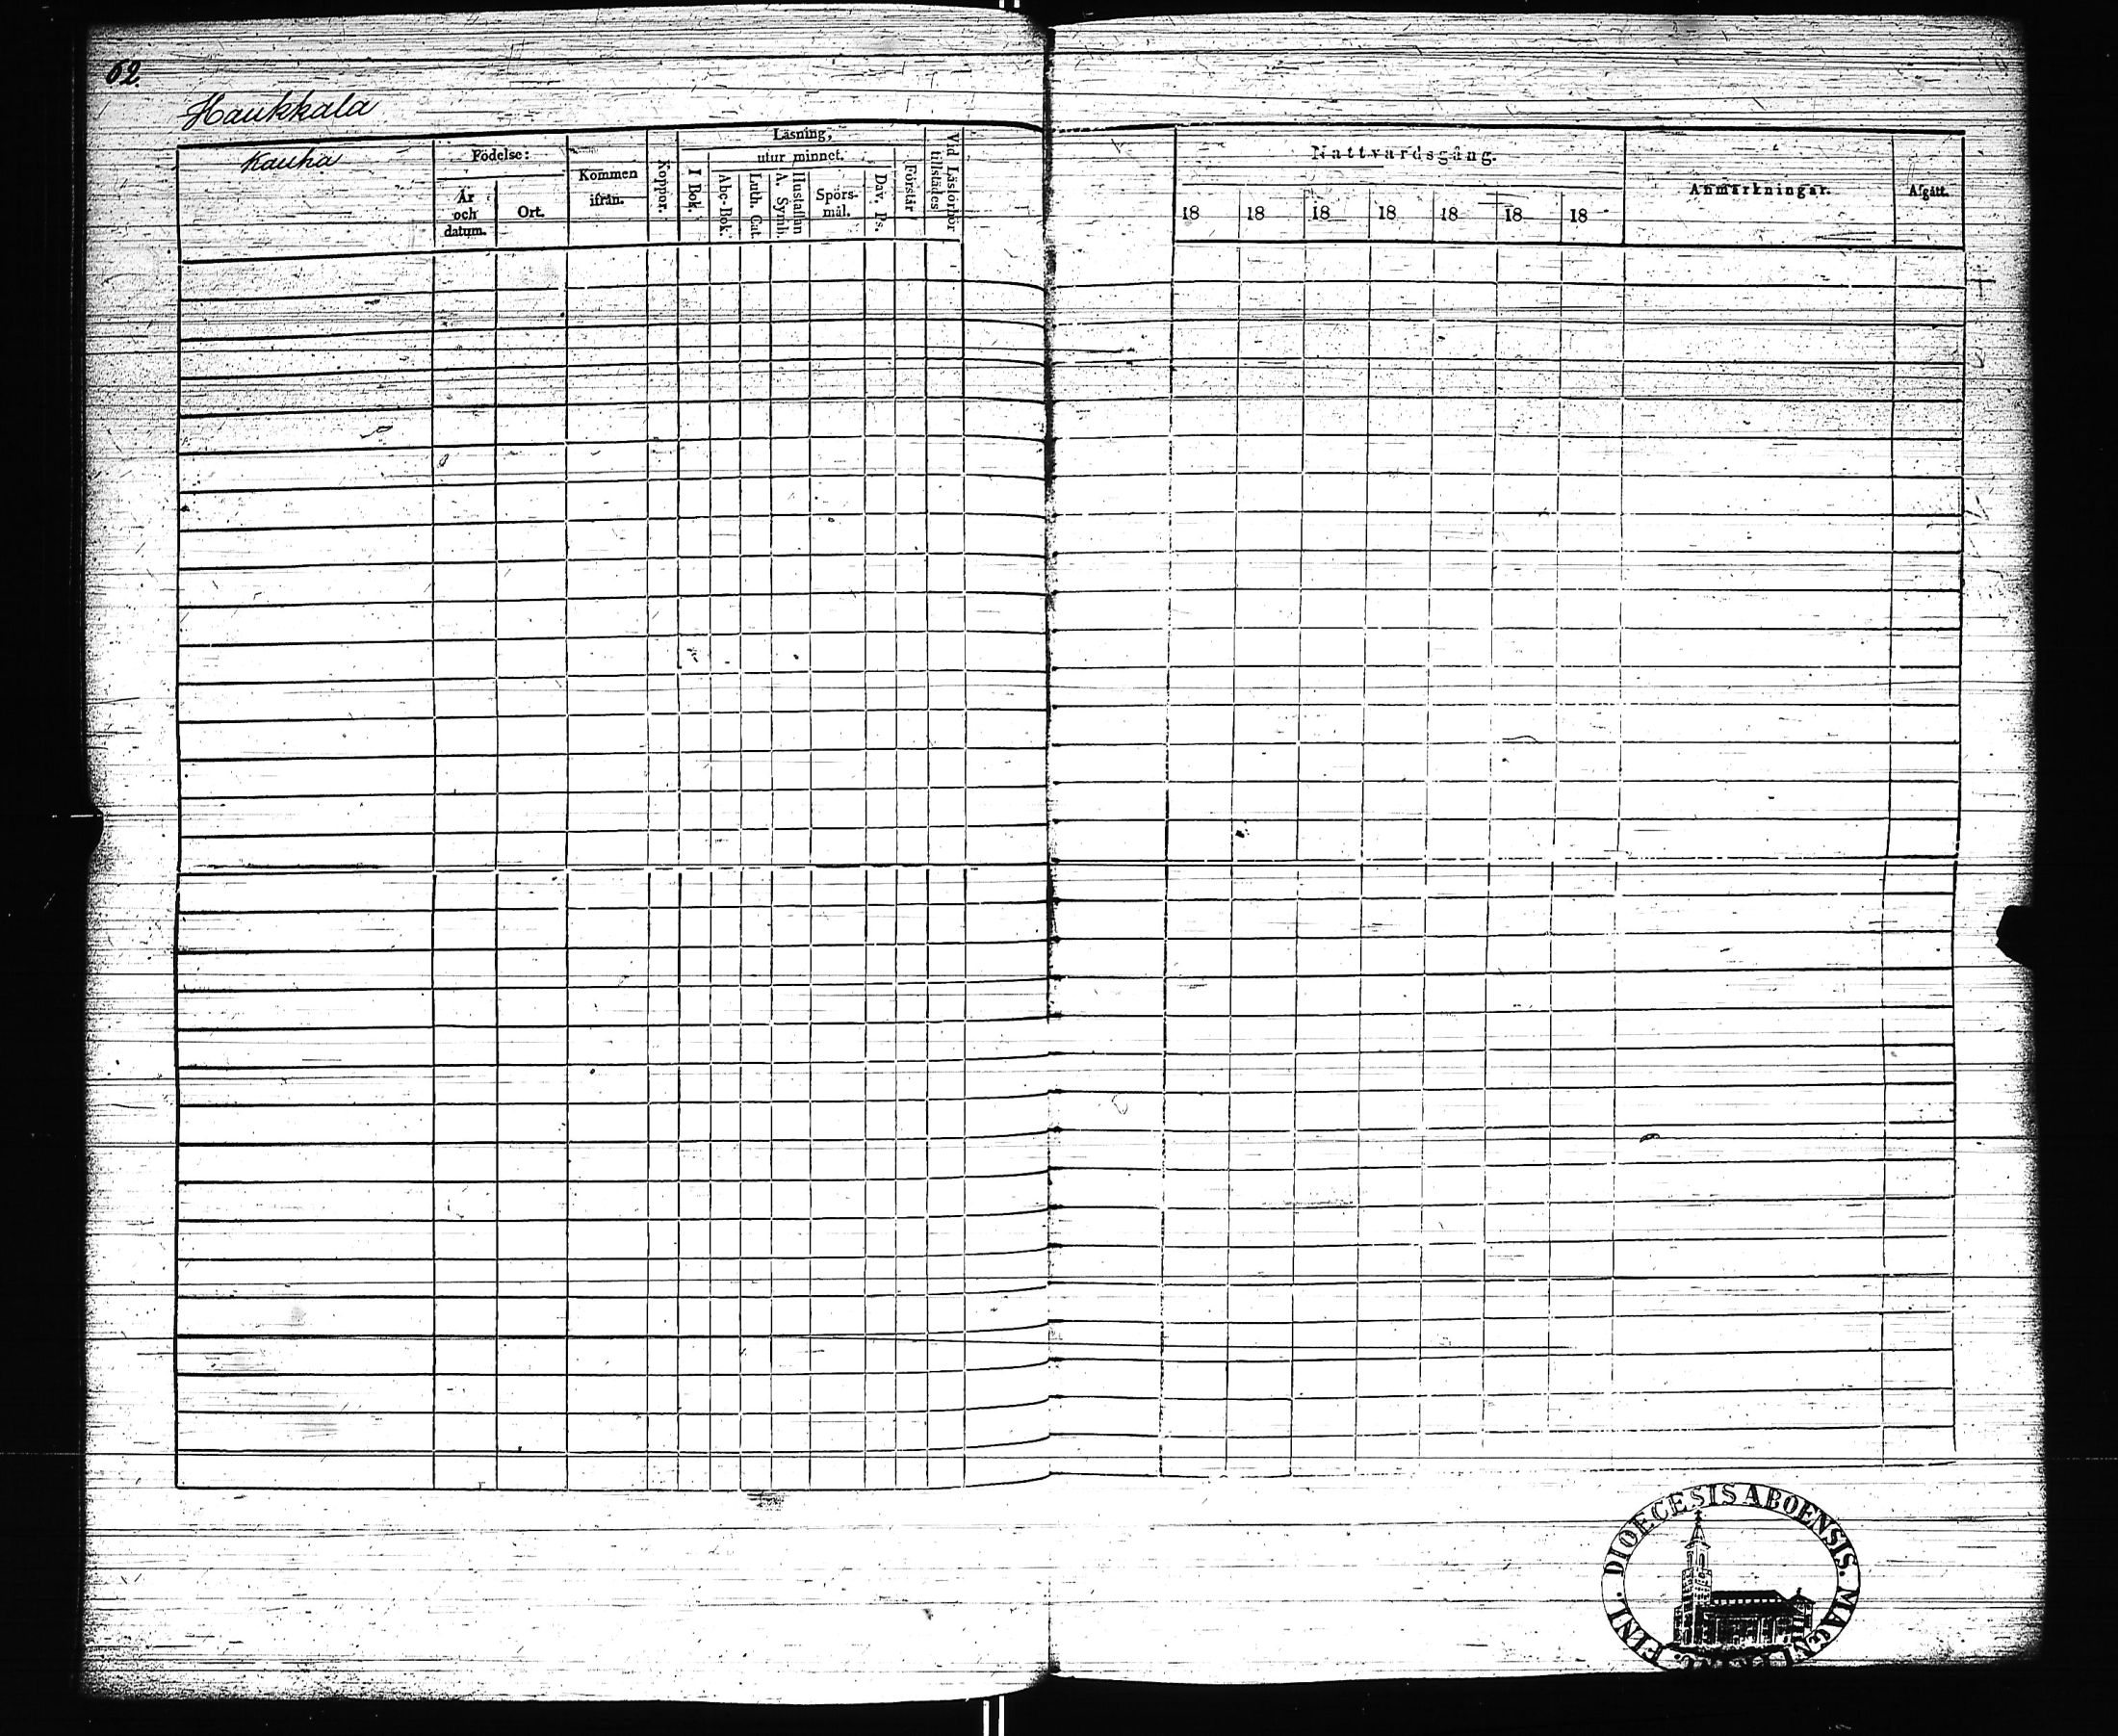 62.
Haukkala
Kauha
Födelse:
År
och
datum.
Ort.
Kommen
ifrån.
Koppor.
Läsning,
I Bok.
utur minnet.
Abc-Bok.
Luth. Cat.
Hustaflan
A. Symb.
Spörs-
mål.
Dav. Ps.
Förstår
Vid Läsförhör
tillstädes
Nattvardsgång.
18 18 18 18 18 18 18
Anmärkningar.
Afgått.
DIOECESIS ABOENSIS. MAGNI FINL.